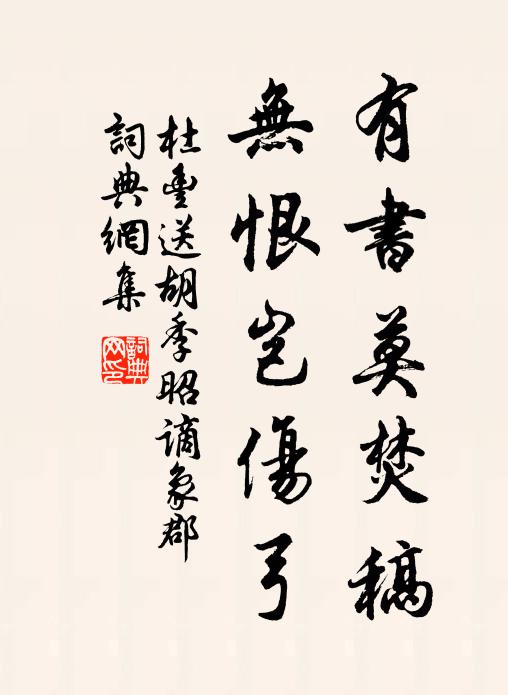 有書莫焚稿
無恨豈傷弓
杜豐送胡季昭謫象郡
詞典網集
詞典
网印